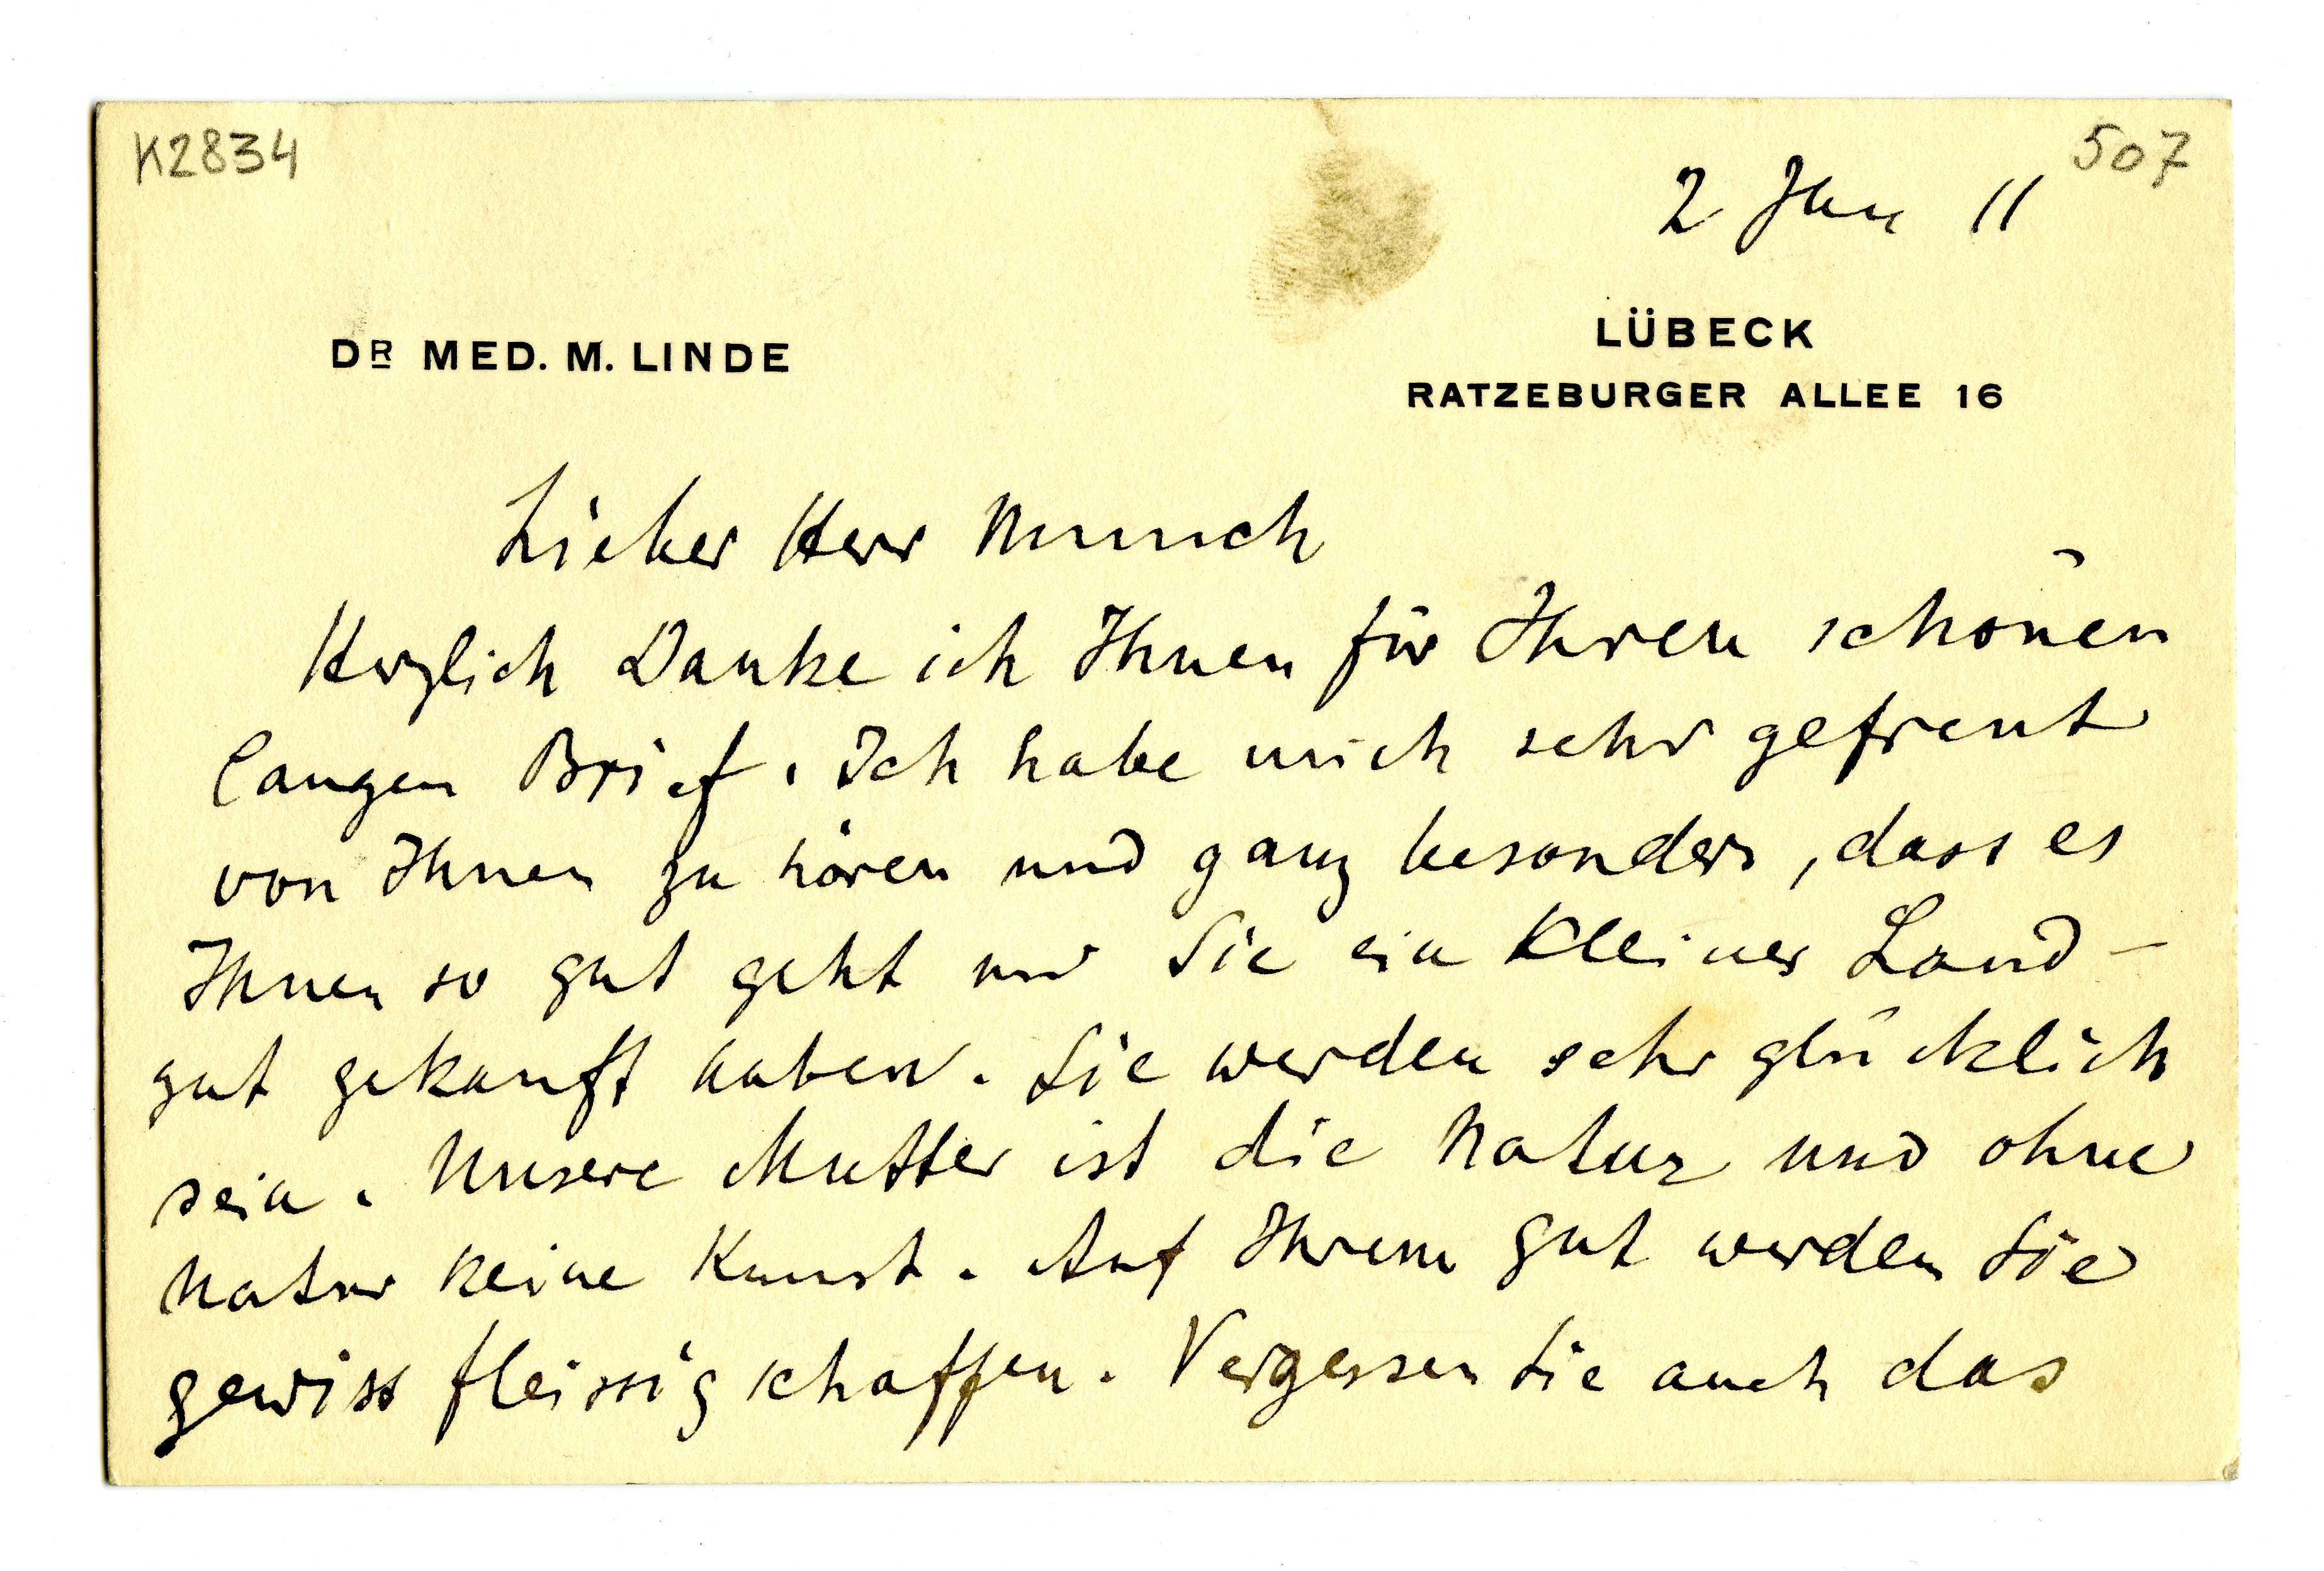 K2834
507
2 Jan 11
DR MED. M. LINDE
LÜBECK
RATZEBURGER ALLEE 16
Lieber Herr Munch
Herzlich Danke ich Ihnen für Ihren schönen
langen Brief. Ich habe mich sehr gefreut
von Ihnen zu hören und ganz besonders, dass es
Ihnen so gut geht und Sie ein kleines Land-
gut gekauft haben. Sie werden sehr glücklich
sein. Unsere Mutter ist die Natur und ohne
Natur keine Kunst. Auf Ihrem Gut werden Sie
gewiss fleissig schaffen. Vergessen Sie auch das